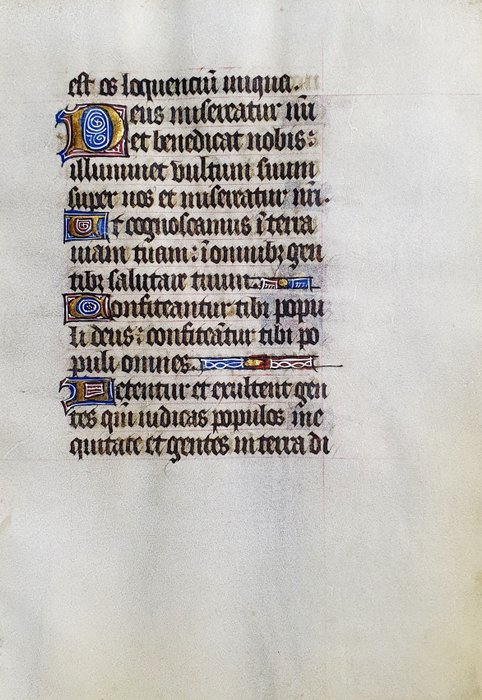 est os loquenciū iniqua.
Deus misereatur nr̄i
et benedicat nobis:
illuminet vultum suum
super nos et misereatur nr̄i.
Ut cognoscamus ī terra
viam tuam: ī omnibꝫ gen
tibꝫ salutare tuum
Confiteantur tibi popu
li deus: confiteātur tibi po
puli omnes
Letentur et exultent gen
tes qm iudicas populos ī ne
quitate et gentes in terra di